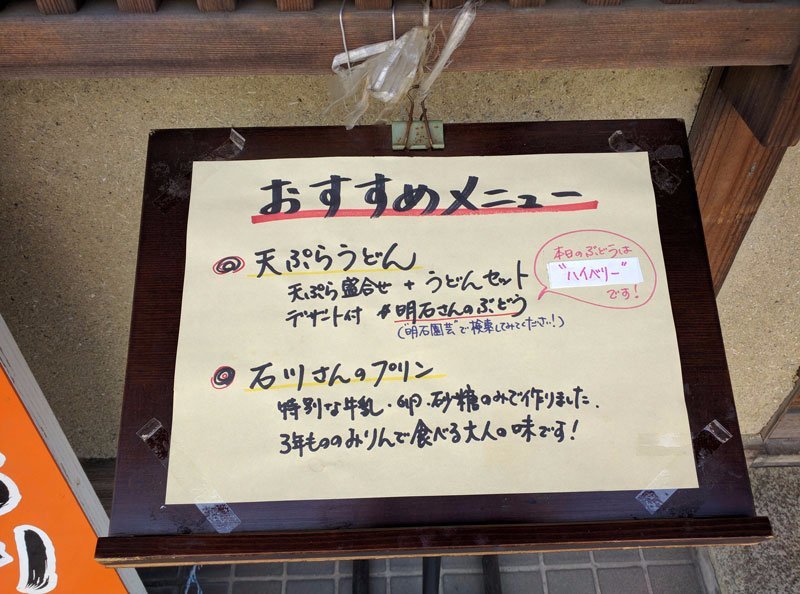 おすすめメニュー
天ぷらうどん
天ぷら盛合せ + うどんセット
デザート付 明石さんのぶどう
("明石園芸"で検索してみてください!)
本日のぶどうは
"ハイベリー"
です!
石川さんのプリン
特別な牛乳・卵・砂糖のみで作りました.
3年もののみりんで食べる大人の味です!